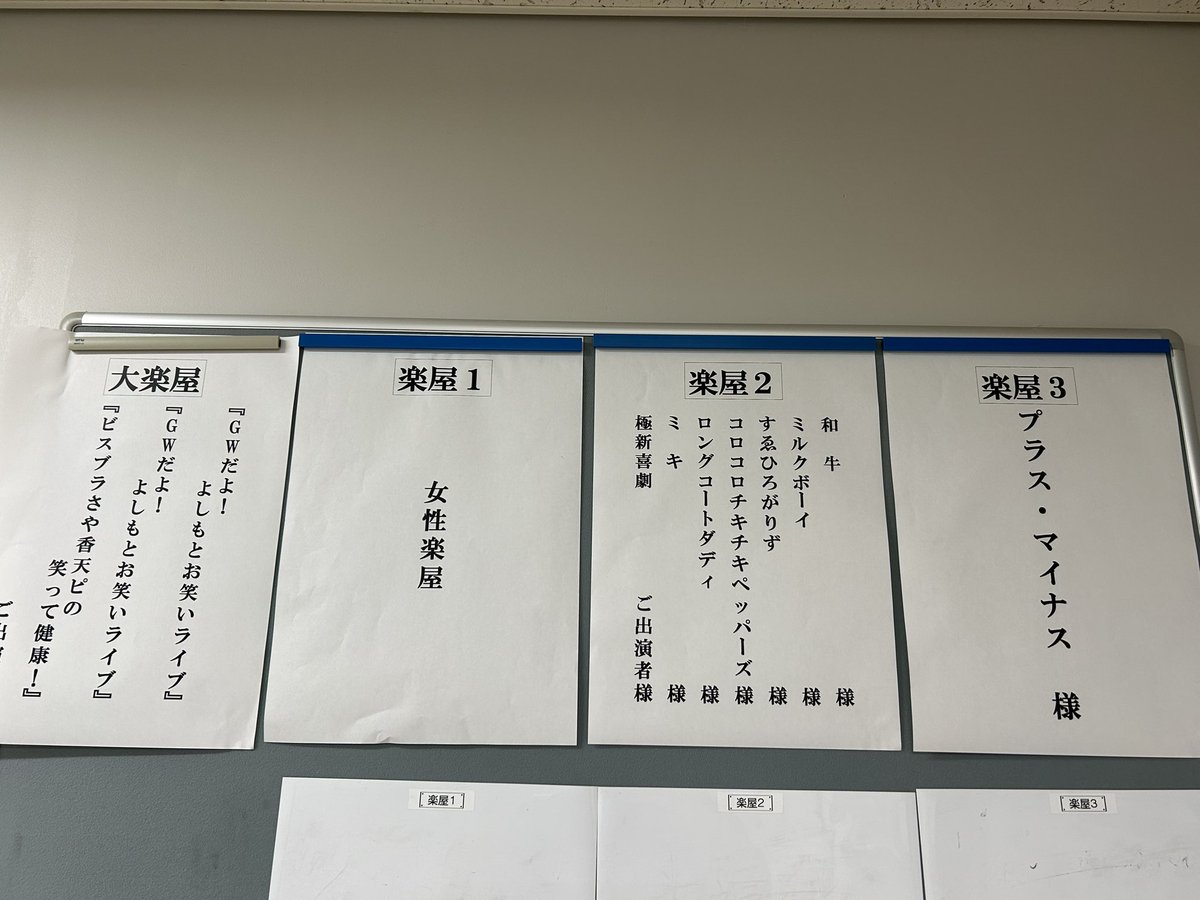 大楽屋
『GWだよ!
よしもとお笑いライブ』
『GWだよ!
よしもとお笑いライブ』
『ビスブラさや香天ピの
笑って健康!』
ご出演
楽屋1
女性楽屋
楽屋2
和牛 様
ミルクボーイ 様
すゑひろがりず 様
コロコロチキチキペッパーズ 様
ロングコートダディ 様
ミキ 様
極新喜劇 ご出演者様
楽屋3
プラス・マイナス 様
楽屋1
楽屋2
楽屋3